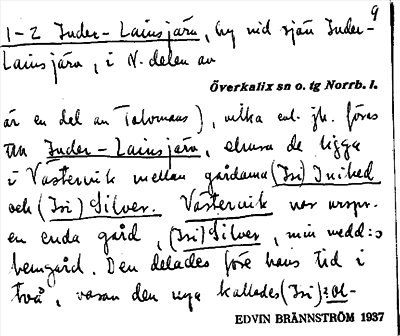 9
1-2 Inder-Lainsjärv, by vid sjön Inder-
Lainsjärv, i N. delen av
Överkalix sn o. tg Norrb. l.
är en del av Talomaas), vilka enl. jb. föres
till Inder-Lainsjärv, ehuru de ligga
i Västervik mellan gårdarna (Isi) Inihed
och (Isi) Silver. Västervik var urspr.
en enda gård, (Isi) Silver, min medd:s
hemgård. Den delades före hans tid i
två, varav den nya kallades (Isi): Ol-
EDVIN BRÄNNSTRÖM 1937